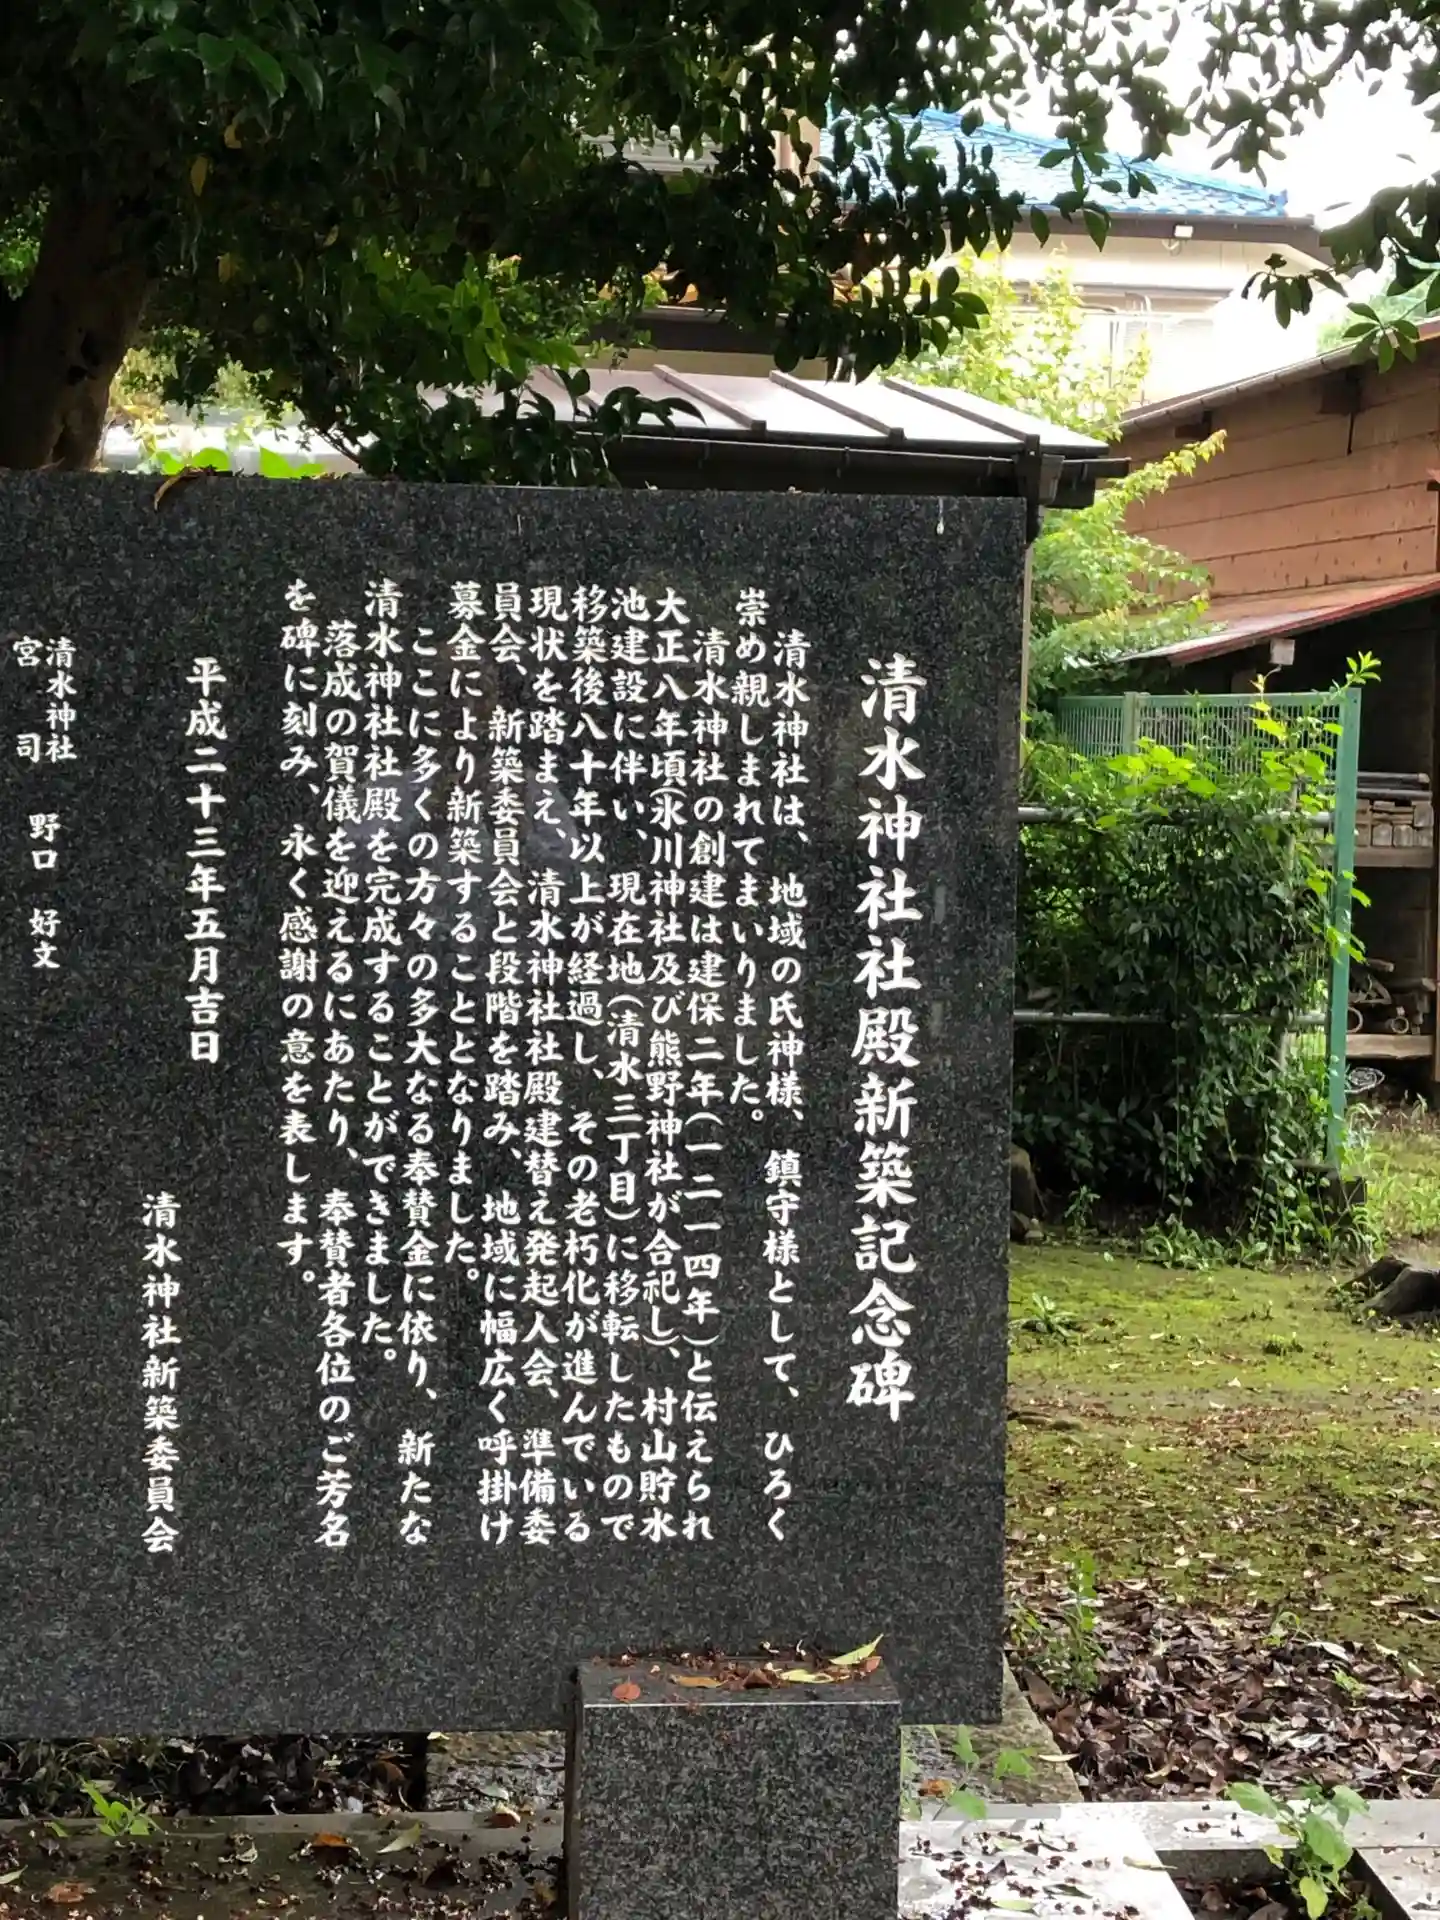 清水神社社殿新築記念碑
清水神社は、地域の氏神様、鎮守様として、ひろく
崇め親しまれてまいりました。
清水神社の創建は建保二年(一二一四年)と伝えられ
大正八年頃(氷川神社及び熊野神社が合祀し)、村山貯水
池建設に伴い、現在地(清水三丁目)に移転したもので
移築後八十年以上が経過し、その老朽化が進んでいる
現状を踏まえ、清水神社社殿建替え発起人会、準備委
員会、新築委員会と段階を踏み、地域に幅広く呼掛け
募金により新築することとなりました。
ここに多くの方々の多大なる奉賛金に依り、新たな
清水神社社殿を完成することができました。
落成の賀儀を迎えるにあたり、奉賛者各位のご芳名
を碑に刻み、永く感謝の意を表します。
平成二十三年五月吉日
清水神社新築委員会
清水神社
宮司 野口 好文